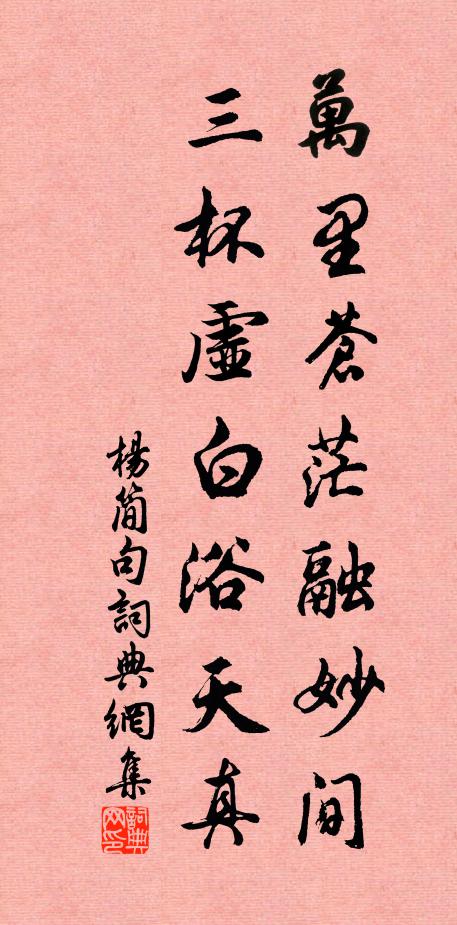 萬里蒼茫融妙間
三杯虛白浴天真
楊簡句詞典網集
詞典网印